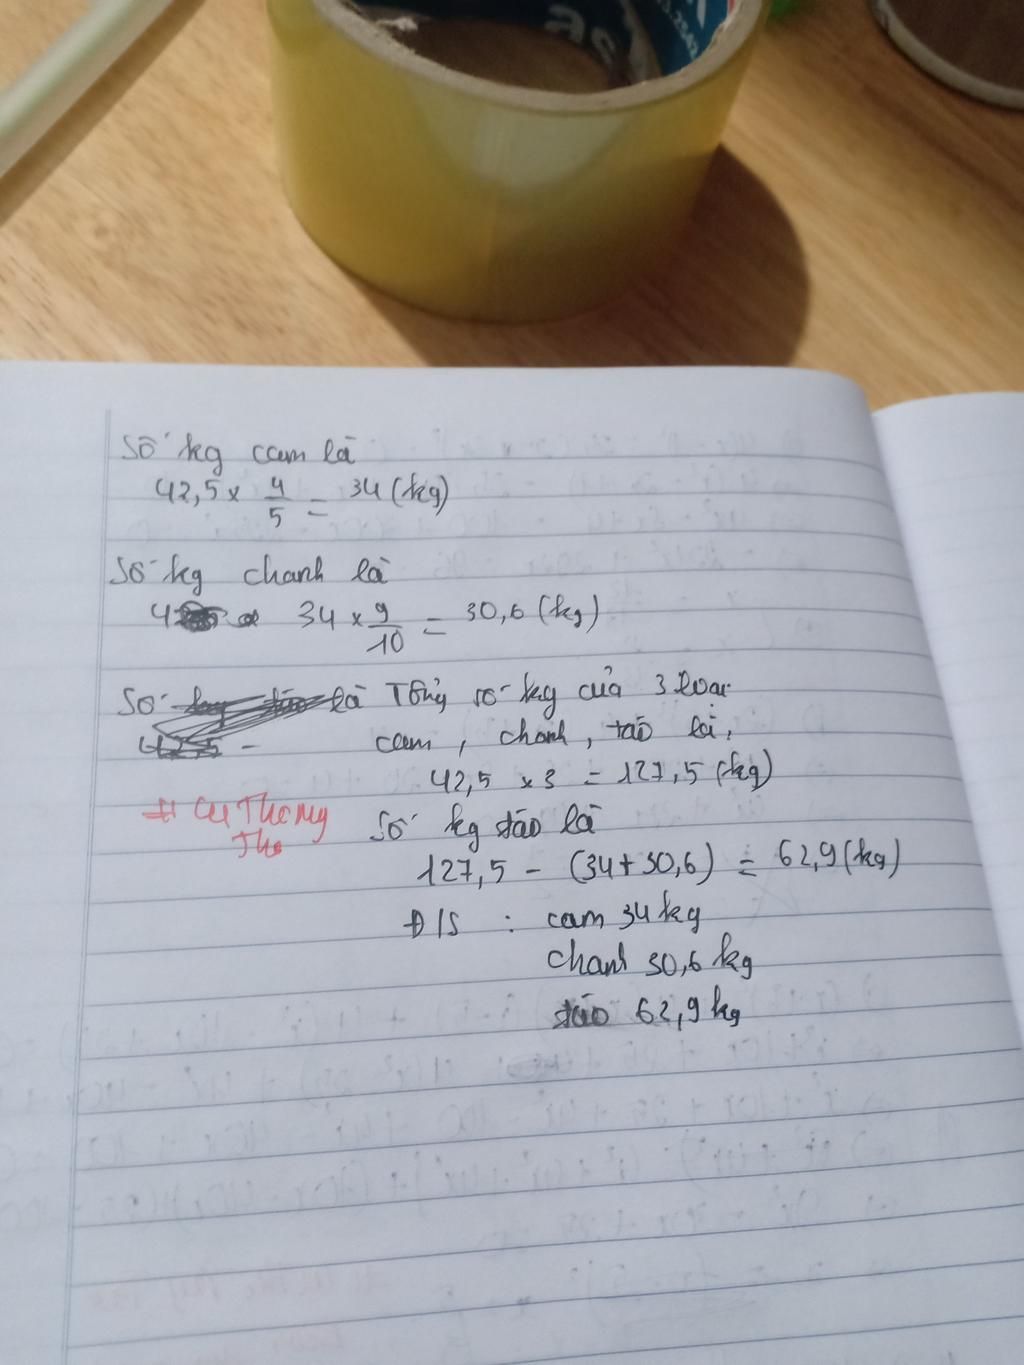 Số kg cam là
42,5 x 4/5 = 34 (kg)
Số kg chanh là
34 x 9/10 = 30,6 (kg)
Số kg táo là Tổng số kg của 3 loại
42,5 - cam, chanh, táo là,
42,5 x 3 = 127,5 (kg)
Số kg táo là
127,5 - (34 + 30,6) = 62,9 (kg)
Đ/S : cam 34 kg
chanh 30,6 kg
táo 62,9 kg